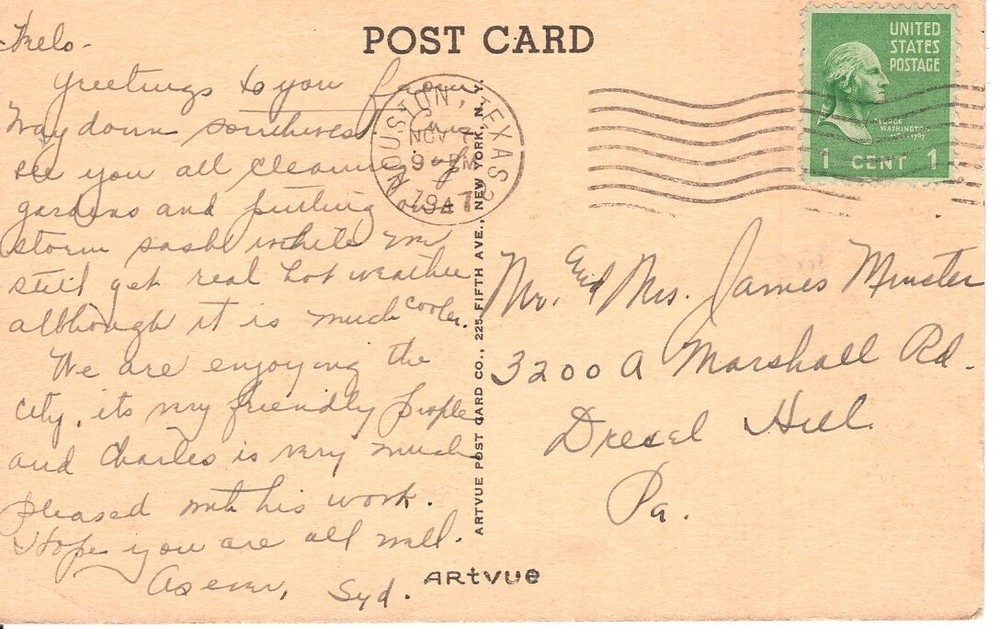 POST CARD
Helo-
Greetings to you from
Way down southwest. Can
see you all cleaning of
gardens and putting on
storm sash while we
still get real hot weather
although it is much cooler.
We are enjoying the
city, its very friendly people
and Charles is very much
pleased with his work.
Hope you are all well.
As ever, Syd.
HOUSTON, TEXAS 2
NOV 7
9 - PM
1947
ARTVUE POST CARD CO., 225 FIFTH AVE., NEW YORK, N. Y.
UNITED
STATES
POSTAGE
GEORGE
WASHINGTON
1 CENT 1
Mr. and Mrs. James Minster
3200 A Marshall Rd.
Drexel Hill
Pa.
ARtvue